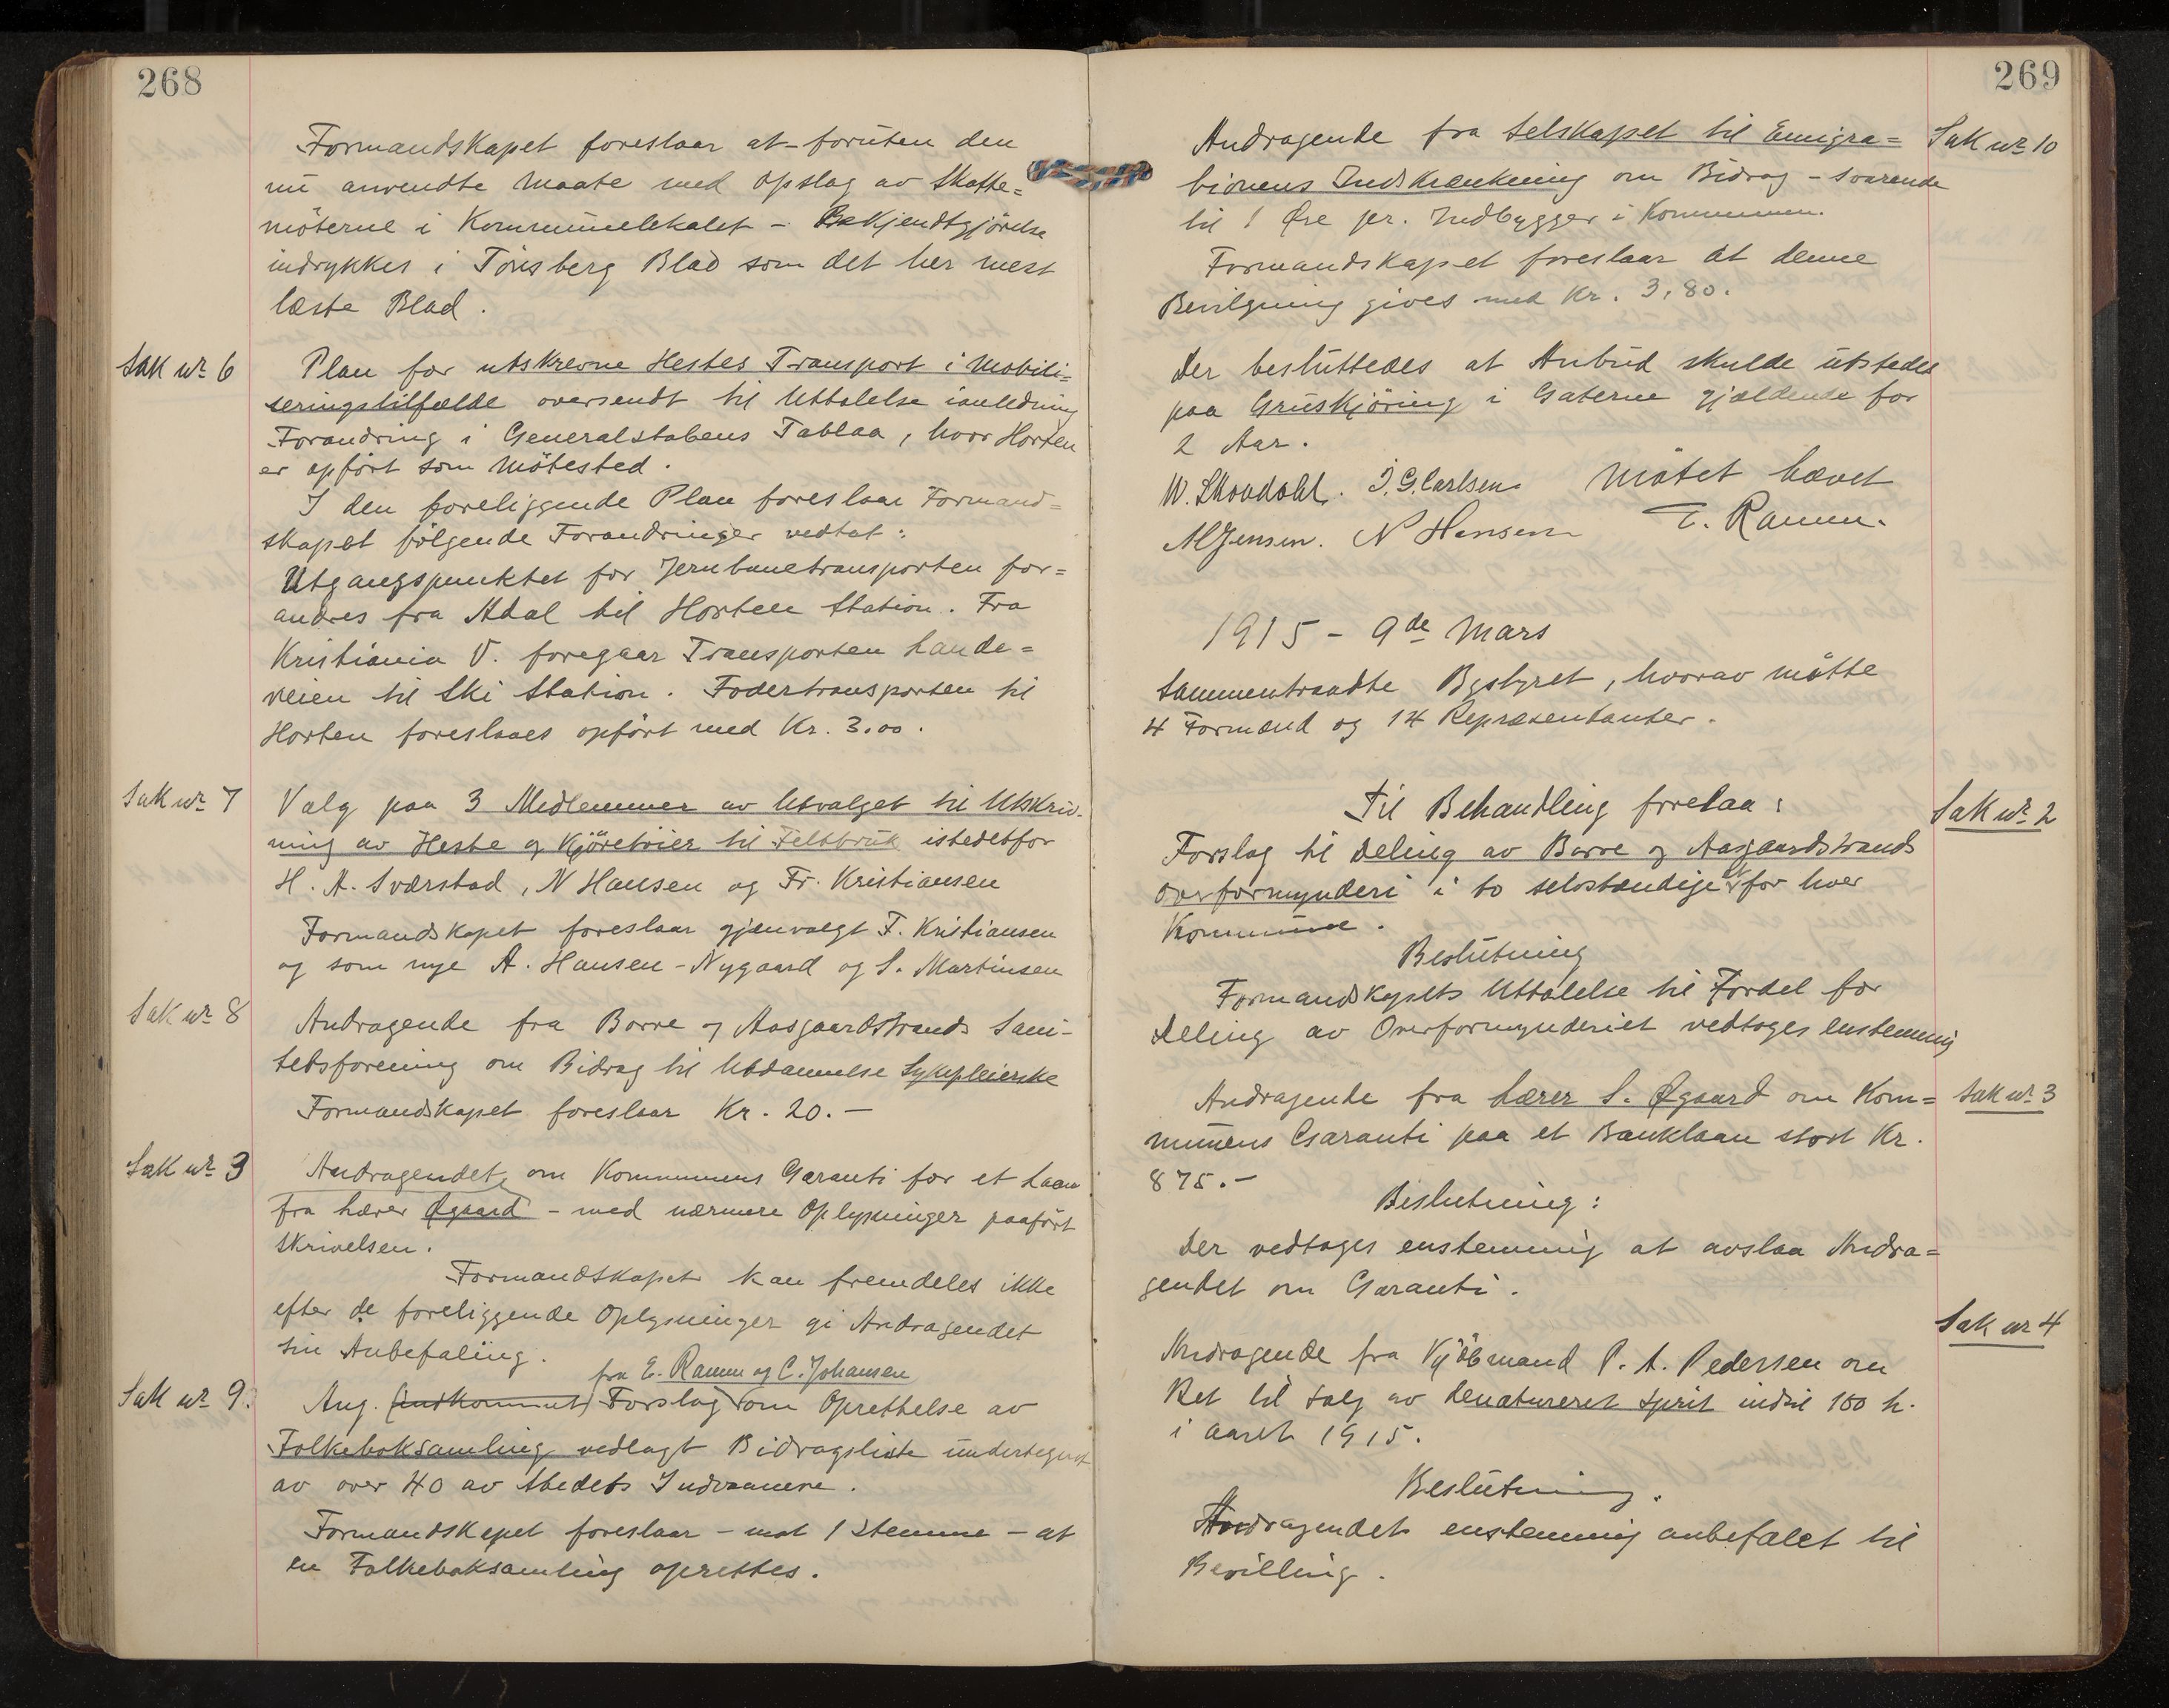 268
Formandskapet foreslaar at foruten den
nu anvendte Maate med Opslag av Skatte=
möterne i Kommunelokalet - Bekjendtgjörelse
indrykkes i Tönsberg Blad som det her mest
læste Blad.
Sak nr 6
Plan for utskrevne Hestes Transport i Mobili=
seringstilfælde oversendt til Uttalelse ianledning
Forandring i Generalstabens Tablaa, hvor Horten
er opfört som Mötested.
I den foreliggende Plan foreslaar Formand=
skapet fölgende Forandringer vedtat:
Utgangspunktet for Jernbanetransporten for=
andres fra Adal til Horten Station. Fra
Kristiania V. foregaar Transporten lande=
veien til Ski Station. Fodertransporten til
Horten foreslaaes opfört med Kr. 3.00.
Sak nr 7
Valg paa 3 Medlemmer av Utvalget til Utskriv-
ning av Heste og Kjöretöier til Feltbruk istedetfor
H. A. Sværstad, N Hansen og Fr. Kristiansen
Formandskapet foreslaar gjenvalgt F. Kristiansen
og som nye A. Hansen-Nygaard og S. Martinsen
Sak nr 8
Andragende fra Borre og Aasgaardstrands Sani-
tetsforening om Bidrag til Utdannelse Sykepleierske
Formandskapet foreslaar Kr. 20.-
Sak nr 3
Andragendet om Kommunens Garanti for et Laan
fra Lærer Øgaard - med nærmere Oplysninger paafört
Skrivelsen.
Formandskapet kan fremdeles ikke
efter de foreliggende Oplysninger gi Andragendet
sin Anbefaling.
fra E. Ramm og C. Johansen
Sak nr 9.
Ang. (indkommet) Forslag om Oprettelse av
Folkeboksamling vedlagt Bidragsliste undertegnet
av over 40 av Stedets Indvaanere.
Formandskapet foreslaar - mot 1 Stemme - at
en Folkeboksamling oprettes.
269
Sak nr 10
Andragende fra Selskapet til Emigra=
tionens Indskrænkning om Bidrag - svarende
til 1 Øre pr. Indbygger i Kommunen.
Formandskapet foreslaar at denne
Bevilgning gives med Kr. 3,80.
Der besluttedes at Anbud skulde utstedes
paa Gruskjöring i Gaterne gjældende for
2 Aar.
W. Skovdahl. J. G. Carlsen Mötet hævet
M Jensen. N Hansen E. Ramm.
1915 - 9de Mars
Sammentraadte Bystyret, hvorav mötte
4 Formænd og 14 Repræsentanter.
Til Behandling forelaa:
Sak nr 2
Forslag til Deling av Borre og Aasgaardstrands
Overformynderi i to selvstændige for hver
Kommune.
Beslutning
Formandskapets Uttalelse til Fordel for
Deling av Overformynderiet vedtoges enstemmig
Sak nr 3
Andragende fra Lærer S. Øgaard om Kom=
munens Garanti paa et Banklaan stort Kr.
875.-
Beslutning:
Der vedtoges enstemmig at avslaa Andra=
gendet om Garanti.
Sak nr 4
Andragende fra Kjöbmand P. A. Pedersen om
Ret til Salg av Denatureret Sprit indtil 100 h.
i Aaret 1915.
Beslutning.
Andragendet enstemmig anbefalet til
Bevilling.